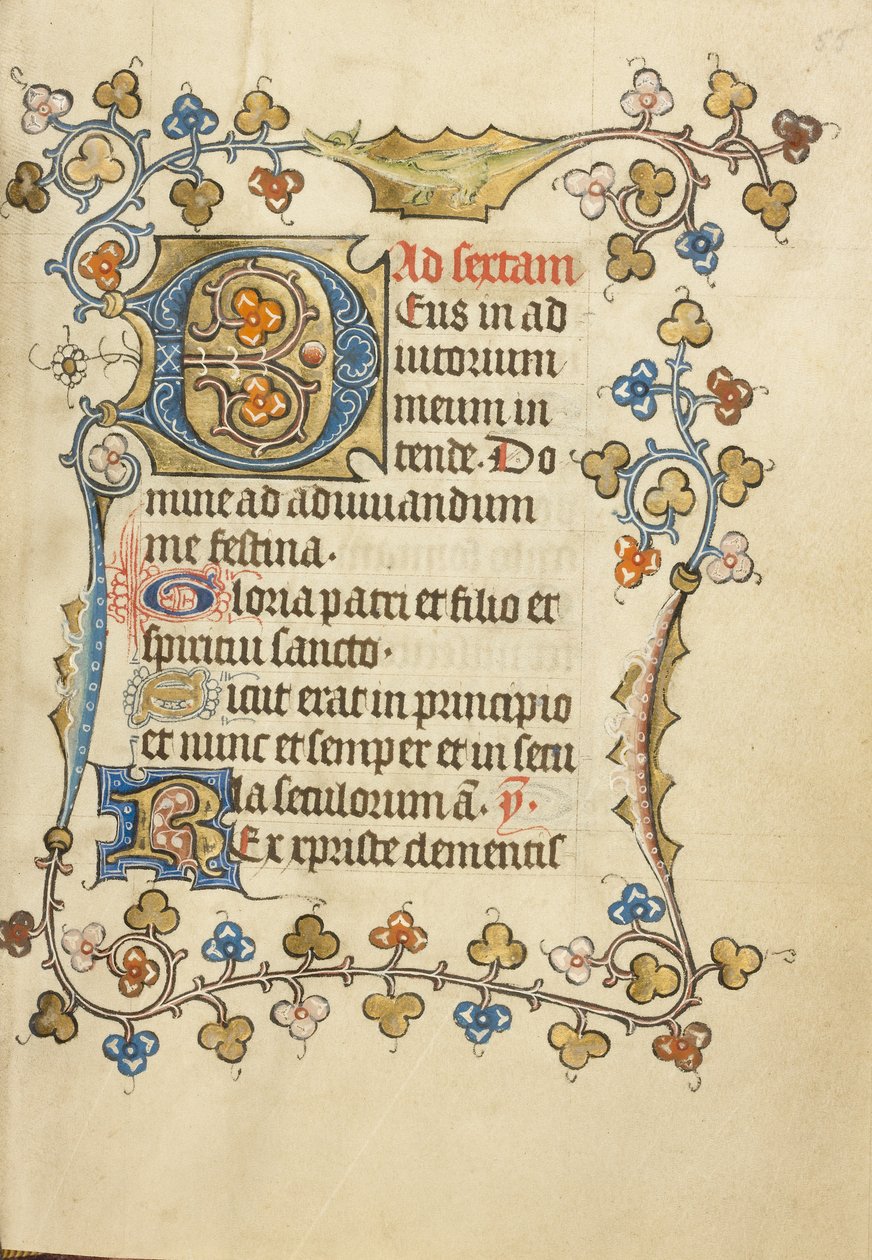 Ad sextam
Deus in ad
iutorium
meum in
tende. Do
mine ad adiuuandum
me festina.
Gloria patri et filio et
spiritui sancto.
Sicut erat in principio
et nunc et semper et in secu
la seculorum am̄. ym̄.
Rex xpriste clementis